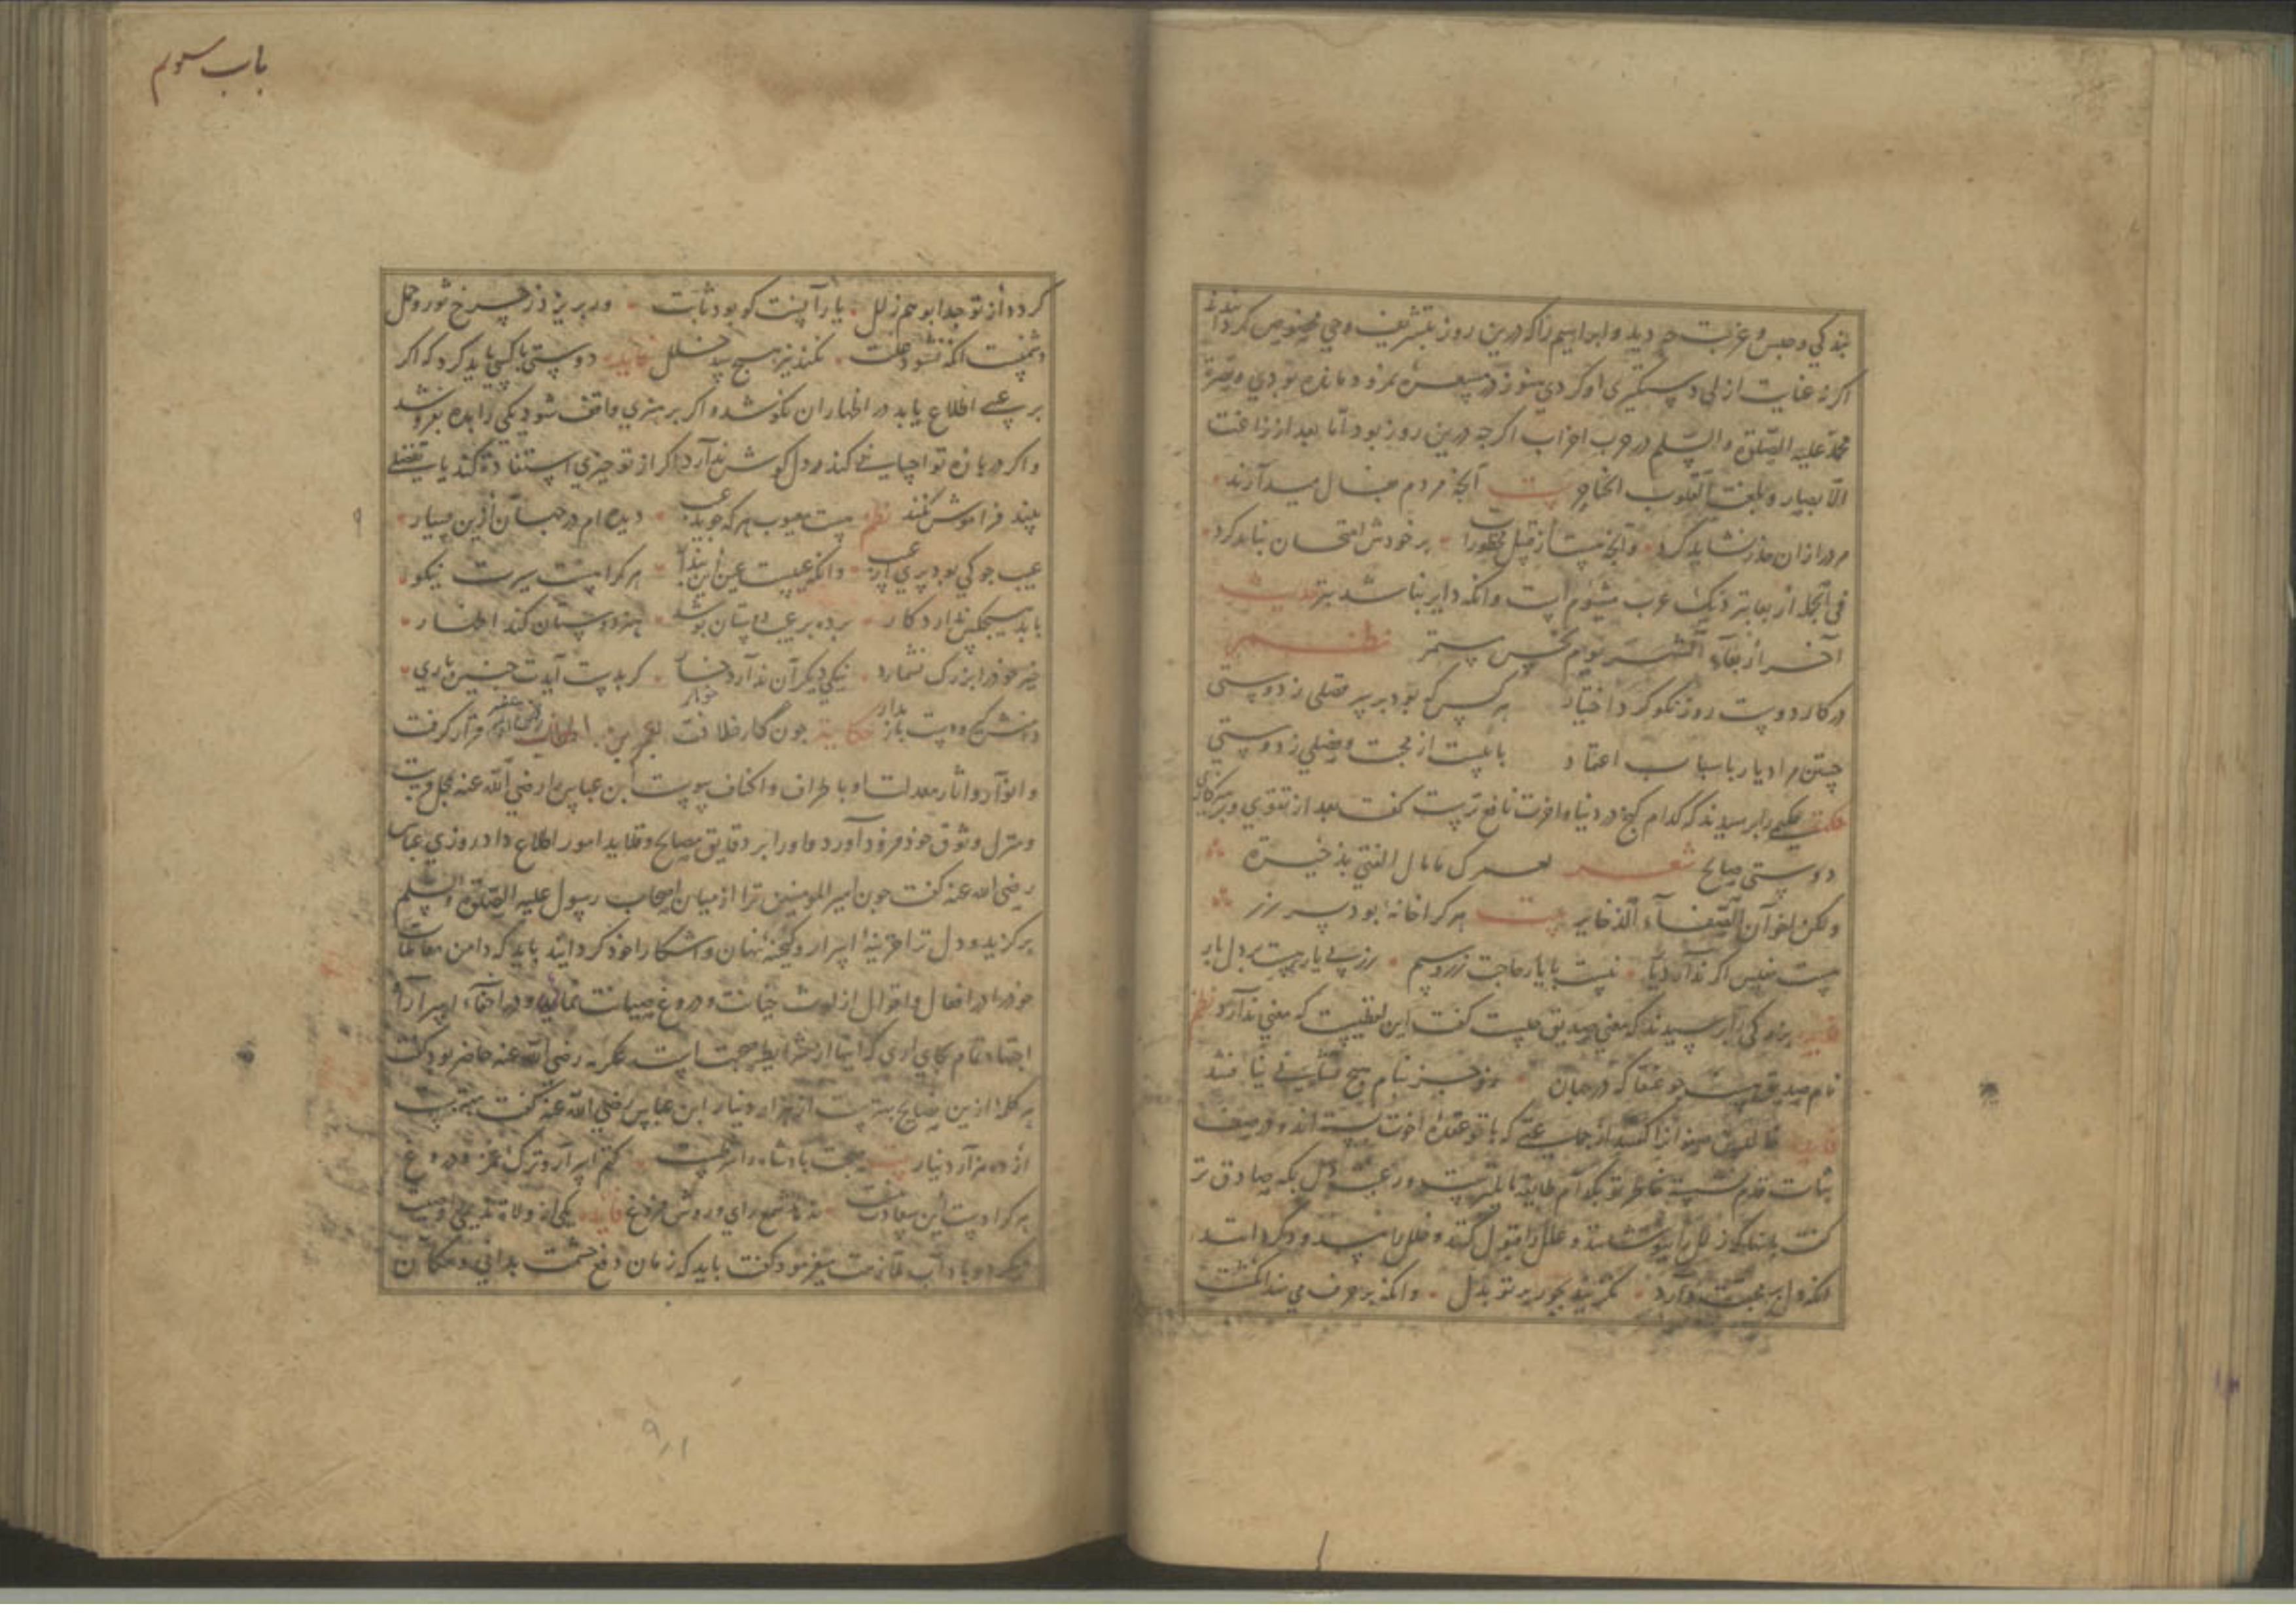 بندکی و حبس و غربت چه دید و ابراهیم را که درین روز بتشریف وحی مخصوص کردانیدند
اکر نه عنایت ازلی دستکیری او کردی هنوز در نمرود مانده بودی و حضرة
محمد علیه الصلوة والسلم در حرب احزاب اکرچه درین روز بود اما بعد از زاغت
الابصار و بلغت القلوب الحناجر بیت آنچه مردم بفال بد آرند
مرد را زان حذر نشاید کرد وآنچه هست از قبل محظورات بر خودش امتحان نباید کرد
فی الجمله اربعا بنزدیک عرب میشوم است وانکه دایر بناشد بتر حدیث
آخر اربعاء الشهر یوم نحس مستمر نظم
در کار دوست روز نکو کرد اختیار هر کس که بود بر سر فصلی ز دوستی
جستن مراد یار باسباب اعتماد بابیست از محبت و فصلی ز دوستی
حکمت حکیمی را پرسیدند که کدام کنج در دنیا و اخرت نافع ترست کفت بعد از تقوی و پرهیزکاری
دوستی صالح شعر لعمرک ما مال الفتی بذخیرة
ولکن اخوان الصفاء الذخایر بیت هر کرا خانهٔ بود پر زر
هست مفلس اکر ندارد یار نیست با یار حاجت زر و سیم زر بی یار هست بر دل بار
بزرکی را پرسیدند که معنی صدیق چیست کفت این لفظیست که معنی ندارد نظم
نام صدیق هست چو عنقا که در جهان جز نام هیچ نشانی نیافتند
فایده از جماعتی که با تو عقد اخوت بسته اند و در صف
ثبات قدم نشسته خاطر تو بکدام طایفه مایلترست و رغبت دل بکه صادق تر
کفت بدانکه زلل را بپوشاند و علل را قبول کند و خلل را مسدود کرداند
انکه دل بر محبت دارد نکزیند بجور بر تو بدل وانکه بر حرف می نهد انکشت
باب سوم
کرده از تو جدا بوهم زلل یار آنست کو بود ثابت ور بریزد ز چرخ ثور و حمل
دشمنست انکه نشنود علت نکند نیز هیچ سد خلل فایده دوستی با کسی باید کرد که اکر
بر عیبی اطلاع یابد در اظهار ان نکوشد و اکر بر هنری واقف شود یکی را بده بفروشد
و اکر در بارهٔ تو احسانی کند در دل کوشش ندارد و اکر از تو چیزی استفاده کند یا تفضلی
بیند فراموش نکند نظم هست معیوب هر که جوید عیب دیده ام در جهان ازین بسیار
عیب جو کی بود بری از عیب وانکه عیبست عین این پندار هر کرا هست سیرت نیکو
با بد هیچکس ندارد کار پرده بر عیب دوستان پوشد هنر دوستان کند اظهار
خیر خود را بزرک نشمارد نیکی دیکران ندارد خوار کر بدست آیدت چنین یاری
دامنش کیر و دست باز مدار حکایة چون کار خلافت بعمر بن الخطاب رضی الله عنه قرار کرفت
و انوار و اثار معدلت او باطراف و اکناف پیوست ابن عباس را رضی الله عنه بمحل قربت
و منزل وثوق خود فرود آورد و او را بر دقایق مصالح و مقالید امور اطلاع داد روزی عباس
رضی الله عنه کفت چون امیر المومنین ترا از میان اصحاب رسول علیه الصلوة والسلم
برکزید و دل ترا خزینهٔ اسرار و کنجینهٔ نهان و اشکارا خود کردانید باید که دامن معاملات
خود را در افعال و اقوال از لوث خیانت و دروغ صیانت نمایی و در اخفاء اسرار او
اجتهاد تمام بجای اری که اینها از شرایط صحبت است عکرمه رضی الله عنه حاضر بود کفت
هر کلمه ازین نصایح بهترست از هزار دینار ابن عباس رضی الله عنه کفت بهترست
از ده هزار دینار بیت صحبت پادشاه را شرطست کتم اسرار و ترک غمز و دروغ
هر کرا دست این سعادت داد شمع رای و روش فروغ فایده یکی از ولاة ندیمی را وصیت
میکرد و باداب ملازمت میفرمود کفت باید که زمان دفع حشمت بدانی و مکان